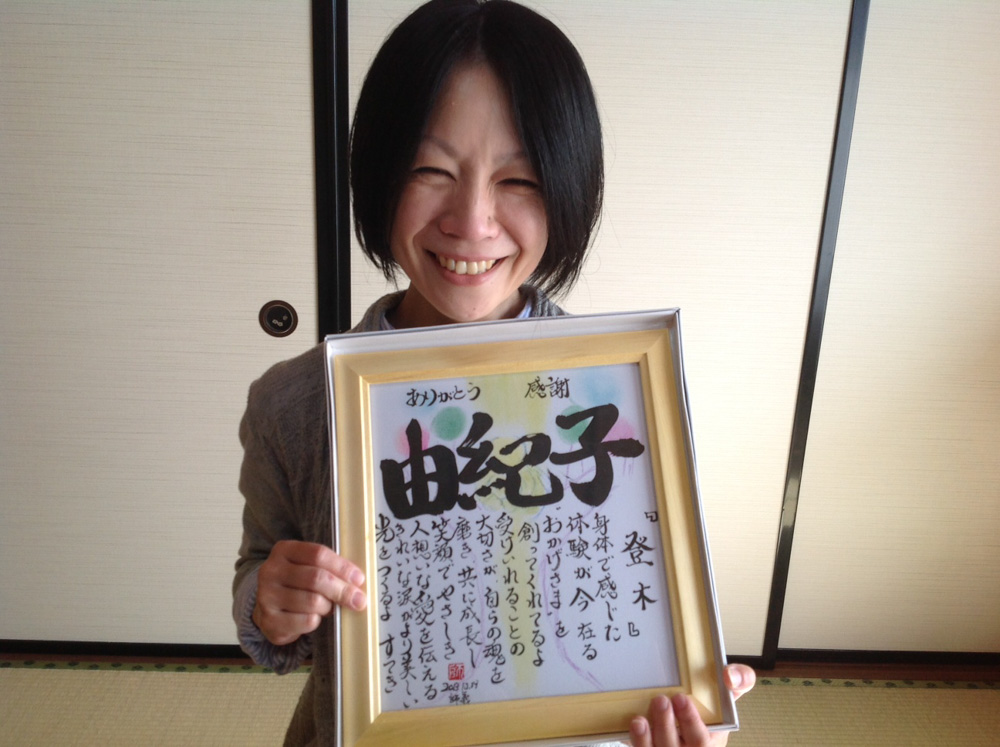 ありがとう　感謝
由紀子
『登木』
身体で感じた
体験が今在る
"おかげさま"を
創ってくれてるよ
受けいれることの
大切さが自らの魂を
磨き共に成長し
笑顔でやさしき
人想いな愛を伝える
きれいな涙がより美しい
光をつくるよ すてき